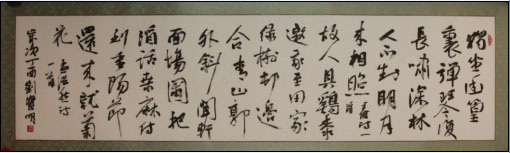 獨坐幽篁
裏彈琴復
長嘯深林
人不知明月
来相照 詩一首
故人具鷄黍
邀我至田家
绿樹邨邊
合青山郭
外斜開軒
面場圃把
酒話桑麻待
到重陽節
還来就菊
花 孟浩然诗一首
歲次丁酉劉